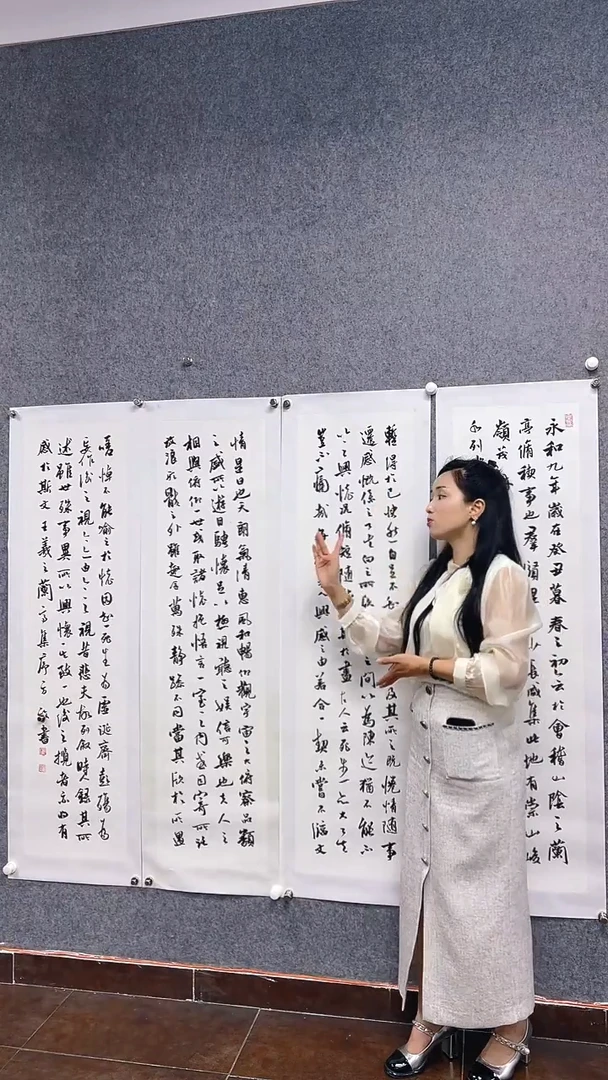 永和九年歲在癸丑暮春之初會於會稽山陰之蘭
亭脩禊事也群賢畢少長咸集此地有崇山峻
嶺茂
列
暫得於己快然自足不及其所之既倦情隨事
遷感慨係之矣向之所欣之間以為陳迹猶不能不
以之興懷況脩短隨於盡古人云死生亦大矣
豈不痛哉每興感之由若合一契未嘗不臨文
情是日也天朗氣清惠風和暢仰觀宇宙之大俯察品類
之盛所以遊目騁懷足以極視聽之娛信可樂也夫人之
相與俯仰一世或取諸懷抱悟言一室之內或因寄所託
放浪形骸之外雖趣舍萬殊靜躁不同當其欣於所遇
嗟悼不能喻之於懷固知一死生為虛誕齊彭殤為
妄作後之視今亦由今之視昔悲夫故列敘時人錄其所
述雖世殊事異所以興懷其致一也後之攬者亦將有
感於斯文王羲之蘭亭集序書